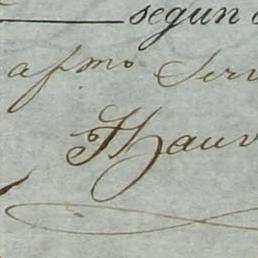 segun
afmo Serv
Hauv